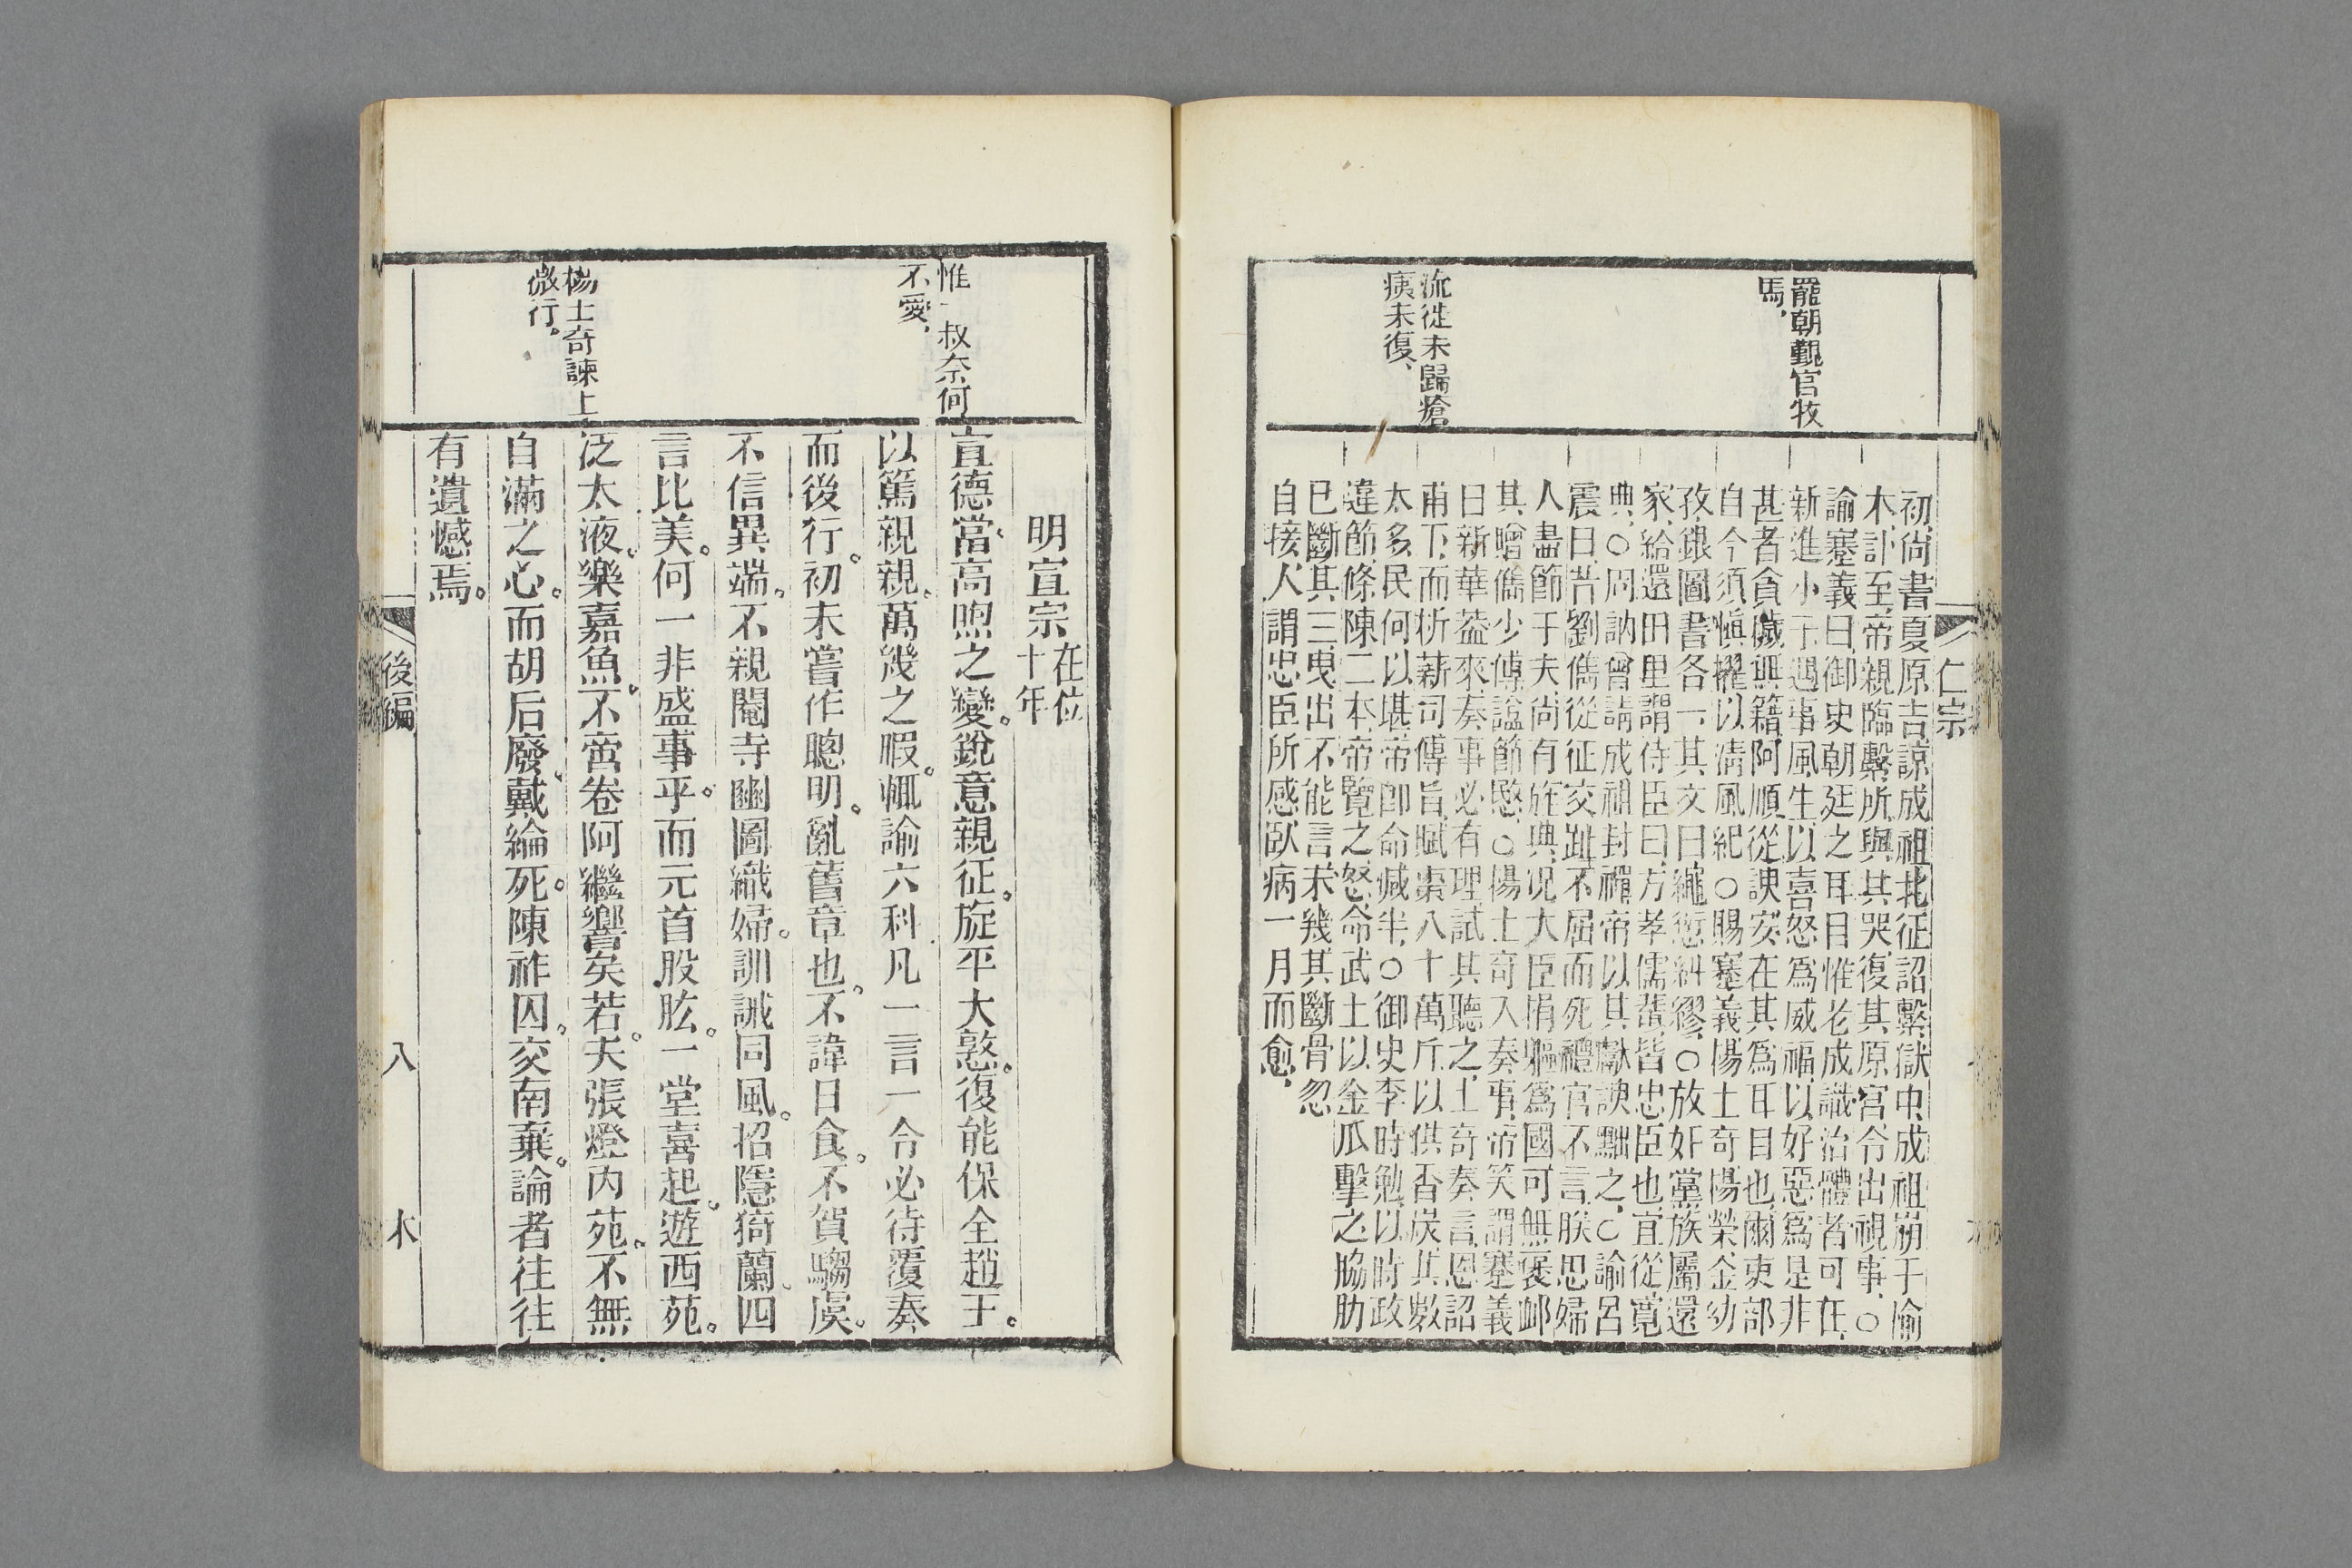 仁宗
罷朝覲官牧
馬、
流徙未歸瘡
痍未復、
初、尚書夏原吉諒成祖北征詔繫獄中、成祖崩于偷
木、訃至、帝親臨繫所、與其哭、復其原官、令出視事、○
諭蹇義曰、御史朝廷之耳目、惟老成識治體者可任、
新進小子、遇事風生、以喜怒爲威福、以好惡爲是非
甚者貪饕無籍、阿順從諛、安在其爲耳目也、爾吏部
自今須愼擢、以淸風紀、○賜蹇義楊士奇楊榮金幼
孜銀圖書各一、其文曰繩愆糾繆、○放奸黨族屬還
家、給還田里、謂侍臣曰、方孝孺輩皆忠臣也、宜從寬
典、○周訥曾請成祖封禪、帝以其獻諛黜之、○諭呂
震曰、昔劉儁從征交趾、不屈而死、禮官不言、朕思婦
人盡節于夫、尚有旌典、況大臣捐軀爲國、可無褒卹
其贈儁少傅、謚節愍、○楊士奇入奏事、帝笑謂蹇義
曰、新華葢來奏事、必有理、試其聽之、士奇奏言、恩詔
甫下、而析薪司傳旨、賦棗八十萬斤、以供香炭、其數
太多、民何以堪、帝卽命減半、○御史李時勉、以時政
違節、條陳二本、帝覽之怒、命武士以金瓜擊之、脇肋
已斷其三、曳出不能言、未幾其斷骨忽
自接、人謂忠臣所感、臥病一月而愈、
惟一叔奈何
不愛、
楊士奇諫上
微行。
明宣宗 在位十年
宣德當高煦之變。銳意親征。旋平大憝。復能保全趙王。
以篤親親。萬幾之暇。輒諭六科凡一言一令必待覆奏
而後行。初未嘗作聰明。亂舊章也。不諱日食。不賀騶虞。
不信異端。不親閹寺豳圖織婦。訓誡同風。招隱猗蘭。四
言比美。何一非盛事乎。而元首股肱。一堂喜起。遊西苑。
泛太液。樂嘉魚。不啻卷阿繼響矣若。夫張燈內苑。不無
自滿之心。而胡后廢。戴綸死。陳祚囚。交南棄。論者往往
有遺憾焉。
後編
八
木